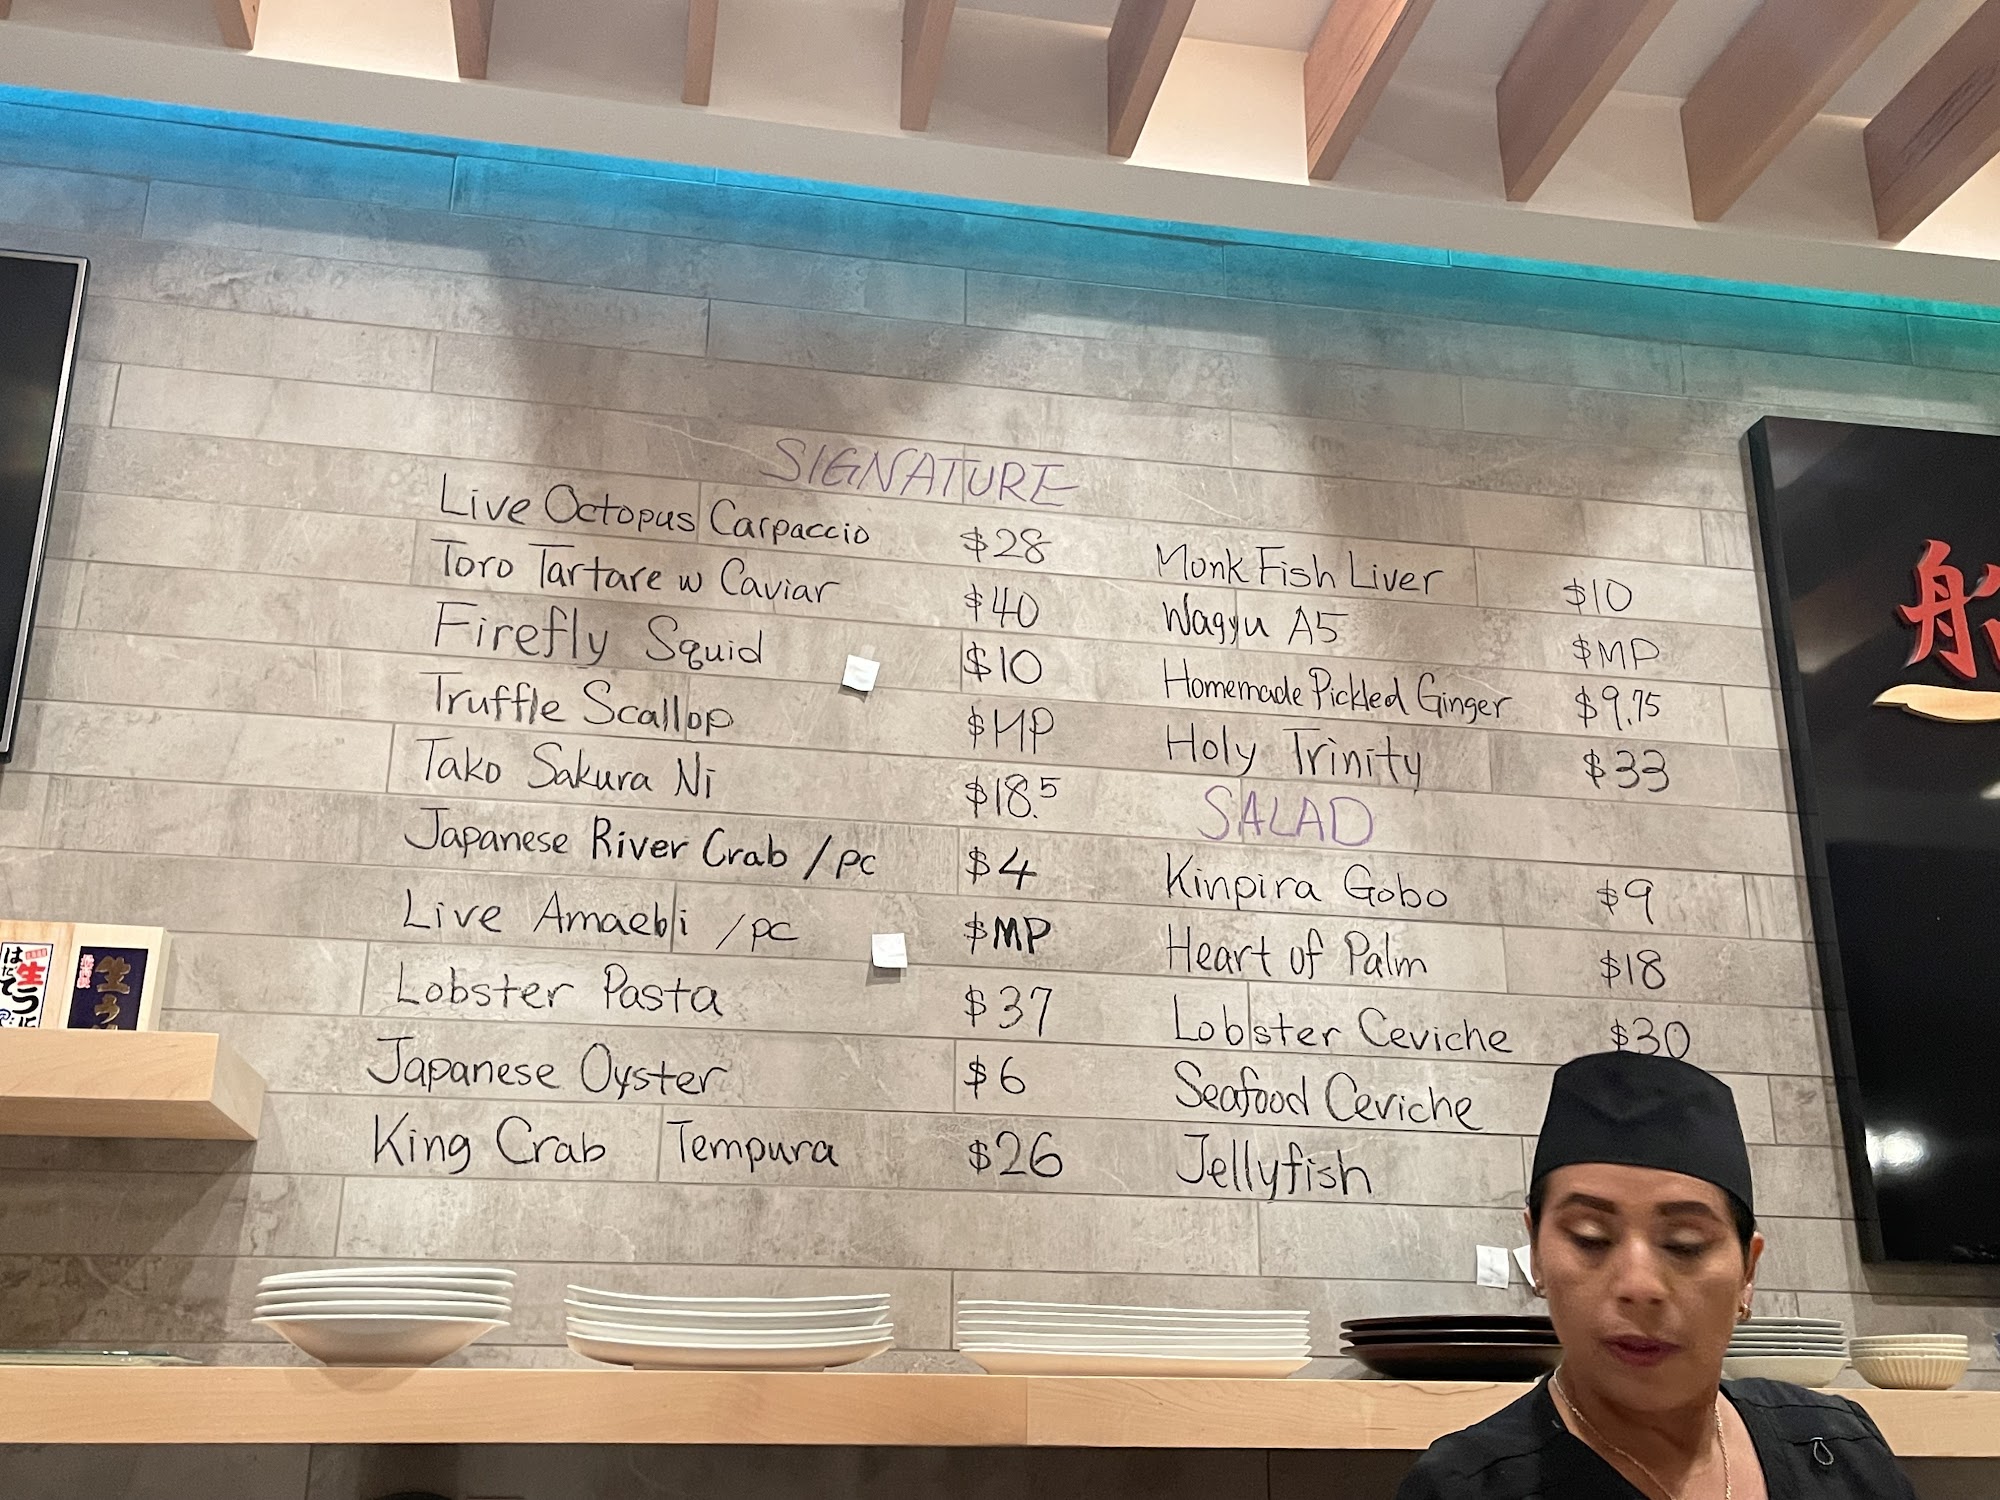 SIGNATURE
Live Octopus Carpaccio $28
Toro Tartare w Caviar $40
Firefly Squid $10
Truffle Scallop $MP
Tako Sakura Ni $18.5
Japanese River Crab /pc $4
Live Amaebi /pc $MP
Lobster Pasta $37
Japanese Oyster $6
King Crab Tempura $26
Monk Fish Liver $10
Wagyu A5 $MP
Homemade Pickled Ginger $9.75
Holy Trinity $33
SALAD
Kinpira Gobo $9
Heart of Palm $18
Lobster Ceviche $30
Seafood Ceviche
Jellyfish
はたて
生うに
生う